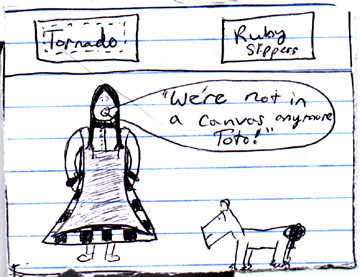 Tornado
Ruby
Slippers
"We're not in
a canvas anymore
Toto!"